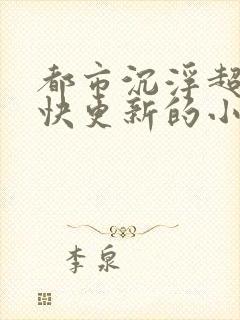 都市沉浮超
快更新的小
李泉